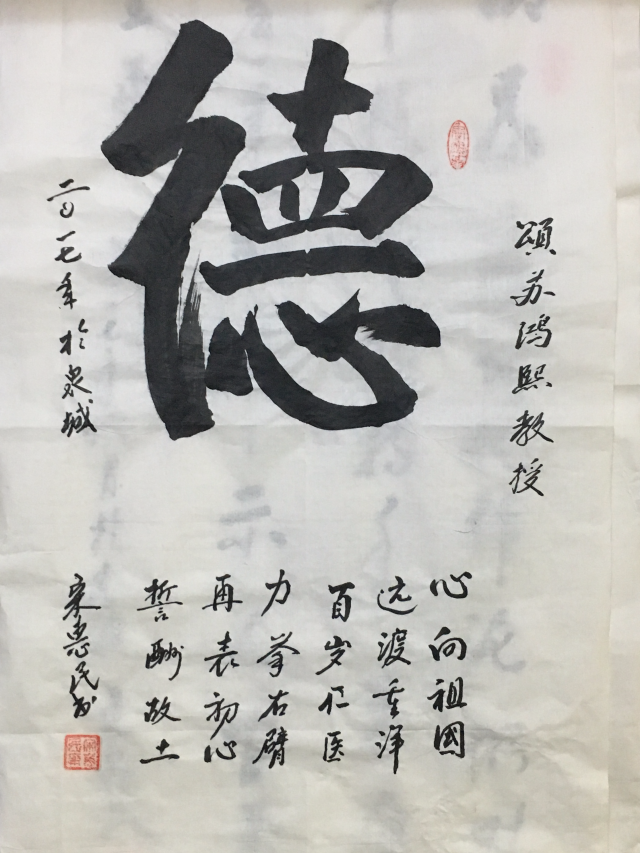 德
頌苏鴻熙教授
心向祖國
远渡重洋
百岁仁医
力挙右臂
再表初心
誓酬故土
二〇一七年於泉城
宋惠民书